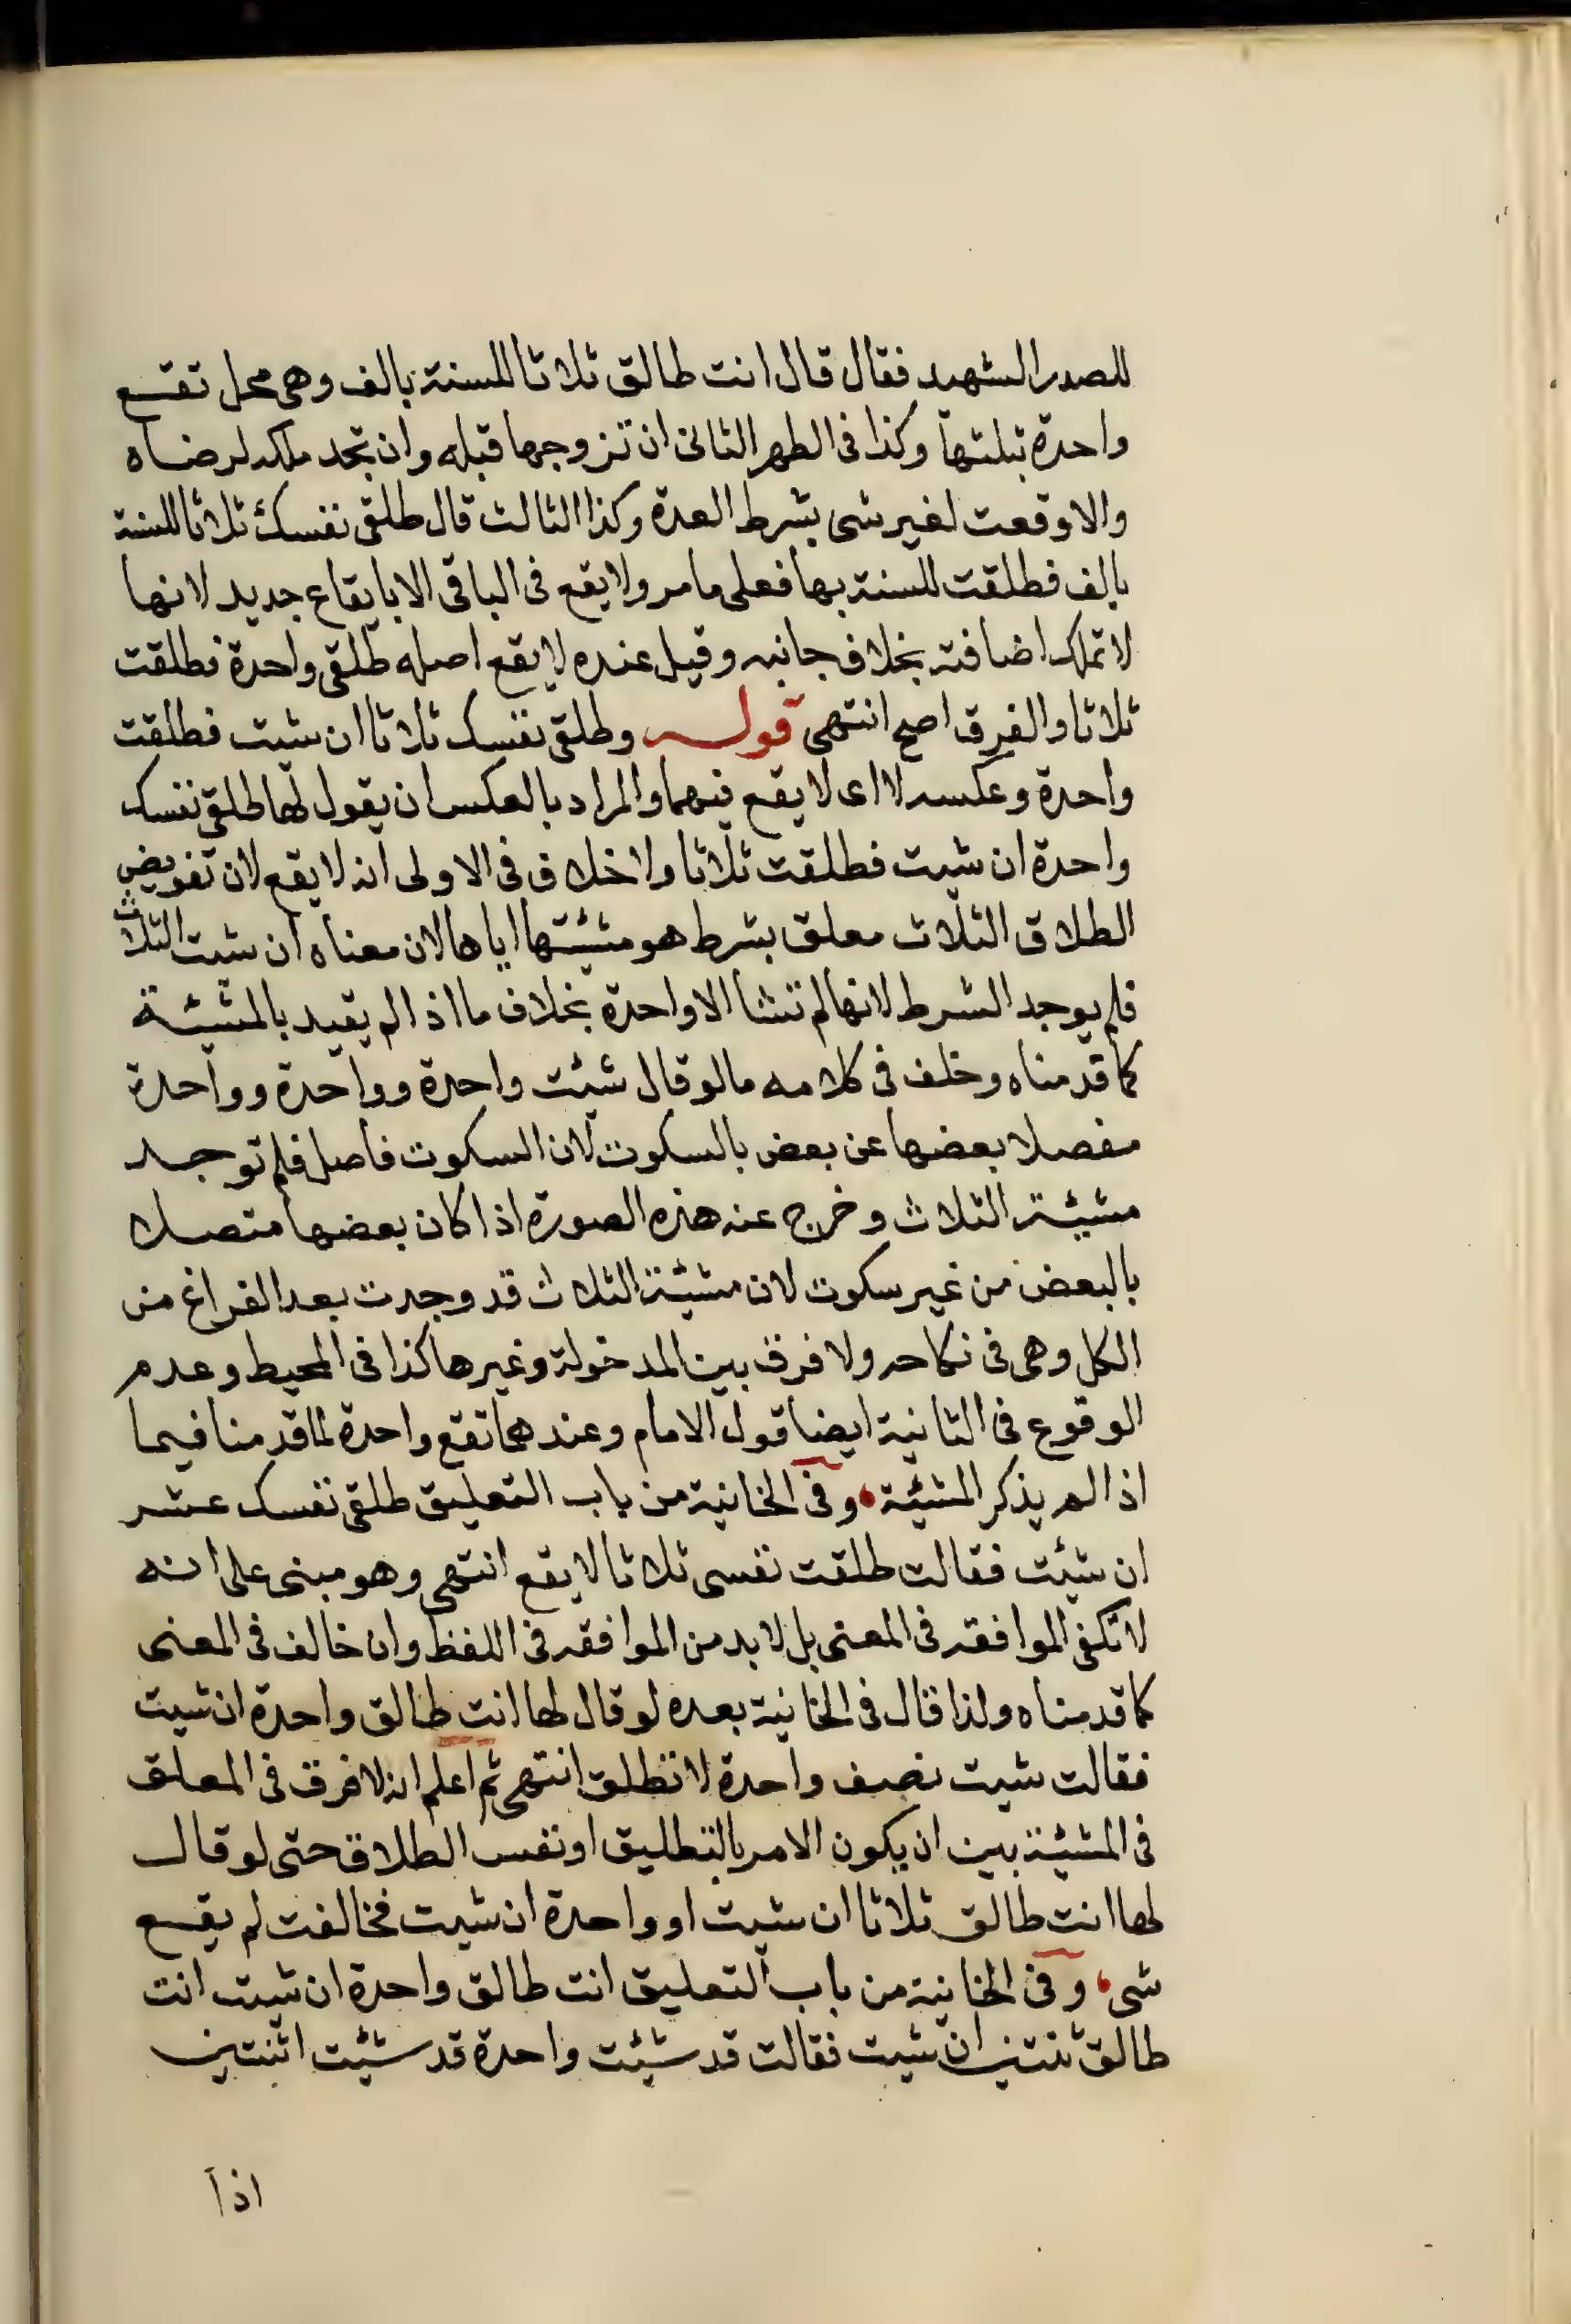 للصدر الشهيد فقال قال انت طالق ثلاثا للسنة بالف وهى محل تقع
واحدة بثلثها وكذا فى الطهر الثانى ان تزوجها قبله وان تجد ملكه لرضاه
والا وقعت لغير شى بشرط العدة وكذا الثالث قال طلقى نفسك ثلاثا للسنة
بالف فطلقت للسنة بها فعلى ما مر ولا يقع فى الباقى الا بايقاع جديد لانها
لا تملك اضافته بخلاف جانبه وقيل عنده لا يقع اصله طلقى واحدة فطلقت
ثلاثا والفرق اصح انتهى قوله وطلقى نفسك ثلاثا ان شيت فطلقت
واحدة وعكسه لا اى لا يقع فيهما والمراد بالعكس ان يقول لها طلقى نفسك
واحدة ان شيت فطلقت ثلاثا ولا خلاف فى الاولى انه لا يقع لان تفويض
الطلاق الثلاث معلق بشرط هو مشيئتها اياها لان معناه ان شيت الثلاث
فلم يوجد الشرط لانها لم تشا الا واحدة بخلاف ما اذا لم يقيد بالمشيئة
كما قدمناه وخلف فى كلامه ما لو قال شيئت واحدة وواحدة وواحدة
مفصلا بعضها عن بعض بالسكوت لان السكوت فاصل فلم توجد
مشيئة الثلاث وخرج عنه هذه الصورة اذا كان بعضها متصلا
بالبعض من غير سكوت لان مشيئة الثلاث قد وجدت بعد الفراغ من
الكل وهى فى نكاحه ولا فرق بين المدخولة وغيرها كذا فى المحيط وعدم
الوقوع فى الثانية ايضا قول الامام وعندهما تقع واحدة لما قدمنا فيما
اذا لم يذكر المشيئة وفى الخانية من باب التعليق طلقى نفسك عشر
ان شيئت فقالت طلقت نفسى ثلاثا لا يقع انتهى وهو مبنى على انه
لا تكفى الموافقه فى المعنى بل لا بد من الموافقه فى اللفظ وان خالف فى المعنى
كما قدمناه ولذا قال فى الخانية بعده لو قال لها انت طالق واحدة ان شيت
فقالت شيت نصف واحدة لا تطلق انتهى ثم اعلم انه لا فرق فى المعلق
فى المشيئة بين ان يكون الامر بالتطليق او نفس الطلاق حتى لو قال
لها انت طالق ثلاثا ان شيت او واحدة ان شيت فخالفت لم يقع
شى وفى الخانية من باب التعليق انت طالق واحدة ان شيت انت
طالق ثنتين ان شيت فقالت قد شيئت واحدة قد شيئت اثنتين
اذا